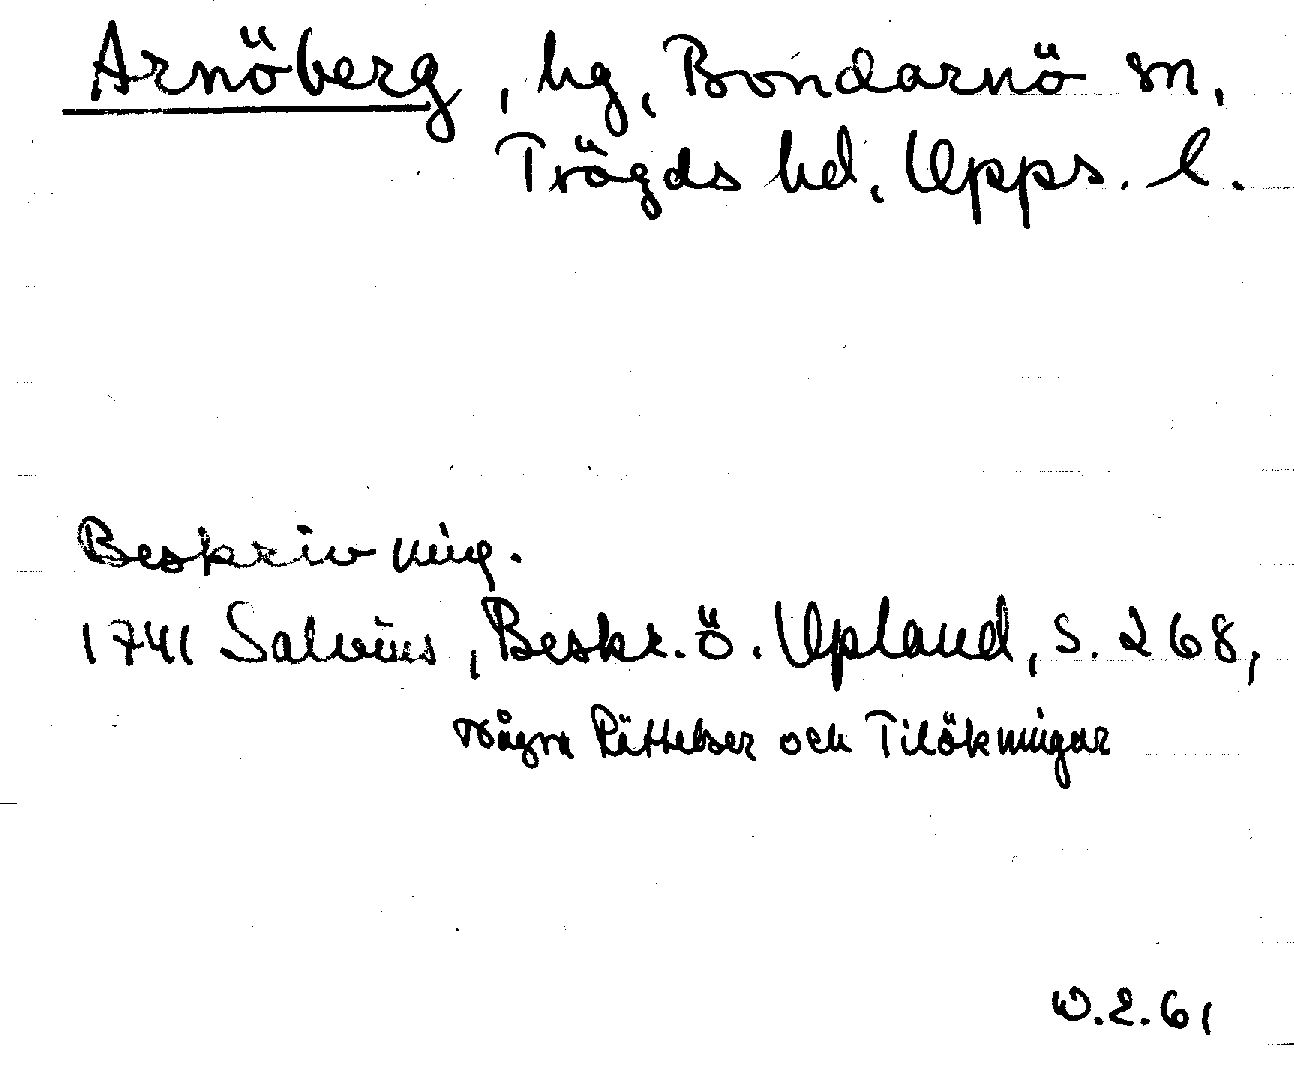 Arnöberg, hg, Bondarnö sn,
Trögds hd, Upps. l.
Beskrivning.
1741 Salvius, Beskr. ö. Upland, S. 268,
Några Rättelser och Tilökningar
W.2.61